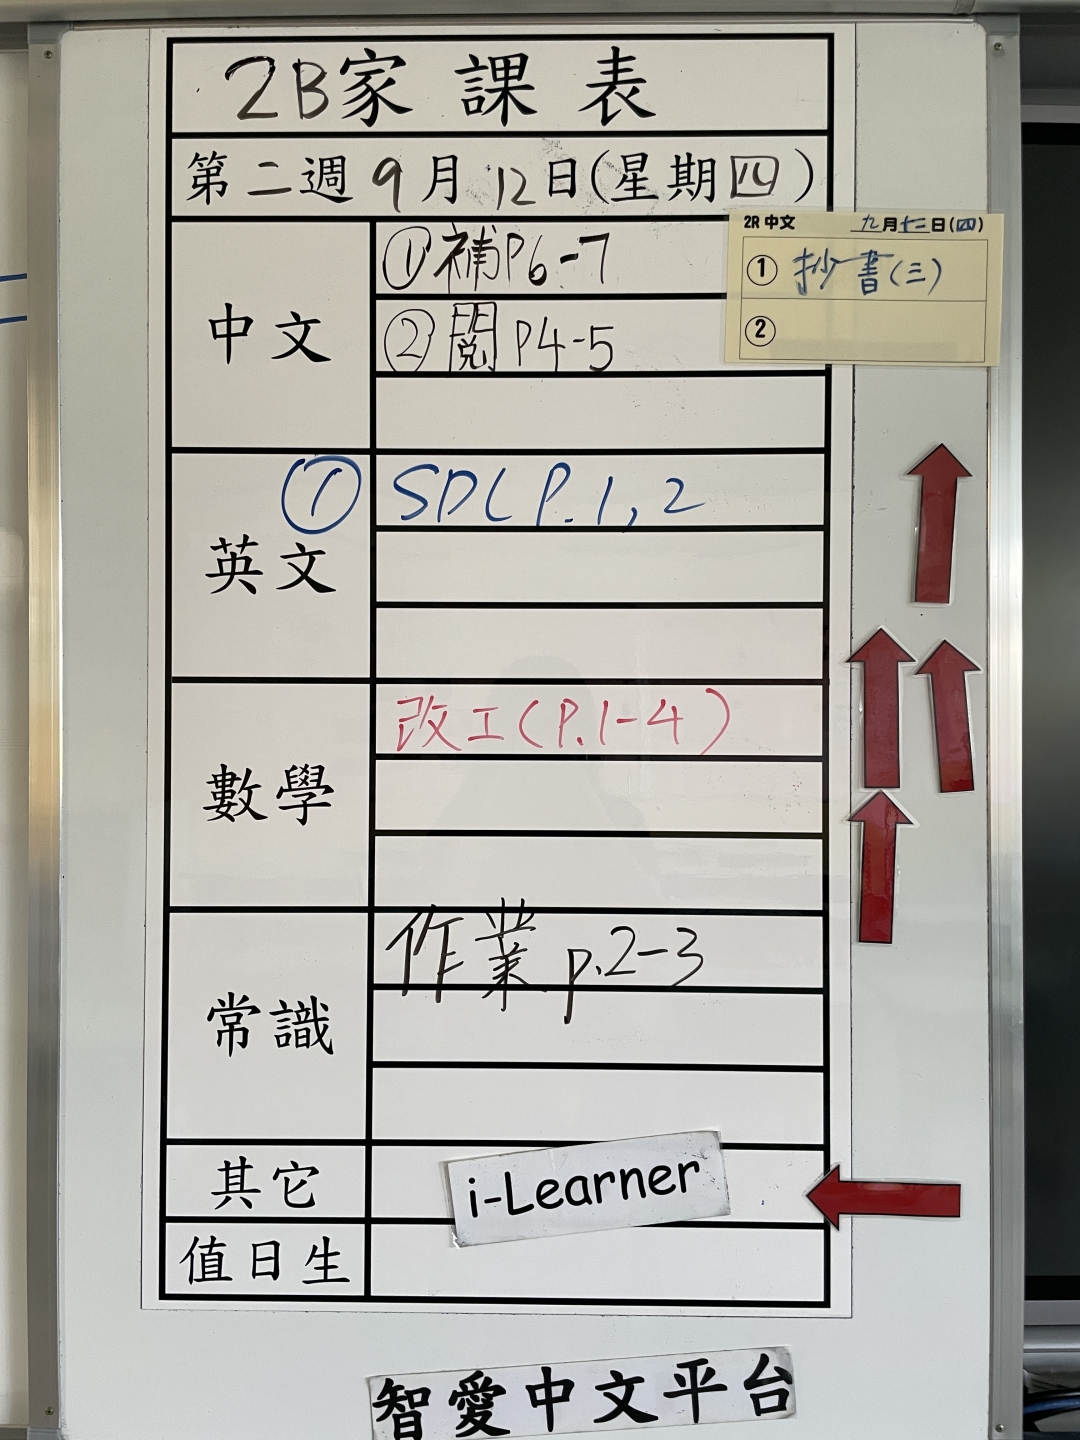 2B家課表
第二週9月12日(星期四)
中文
①補P6-7
②閱P4-5
2R 中文 九月十二日(四)
① 抄書(三)
②
英文
① SDL P.1,2
數學
改工(P.1-4)
常識
作業 p.2-3
其它
i-Learner
值日生
智愛中文平台